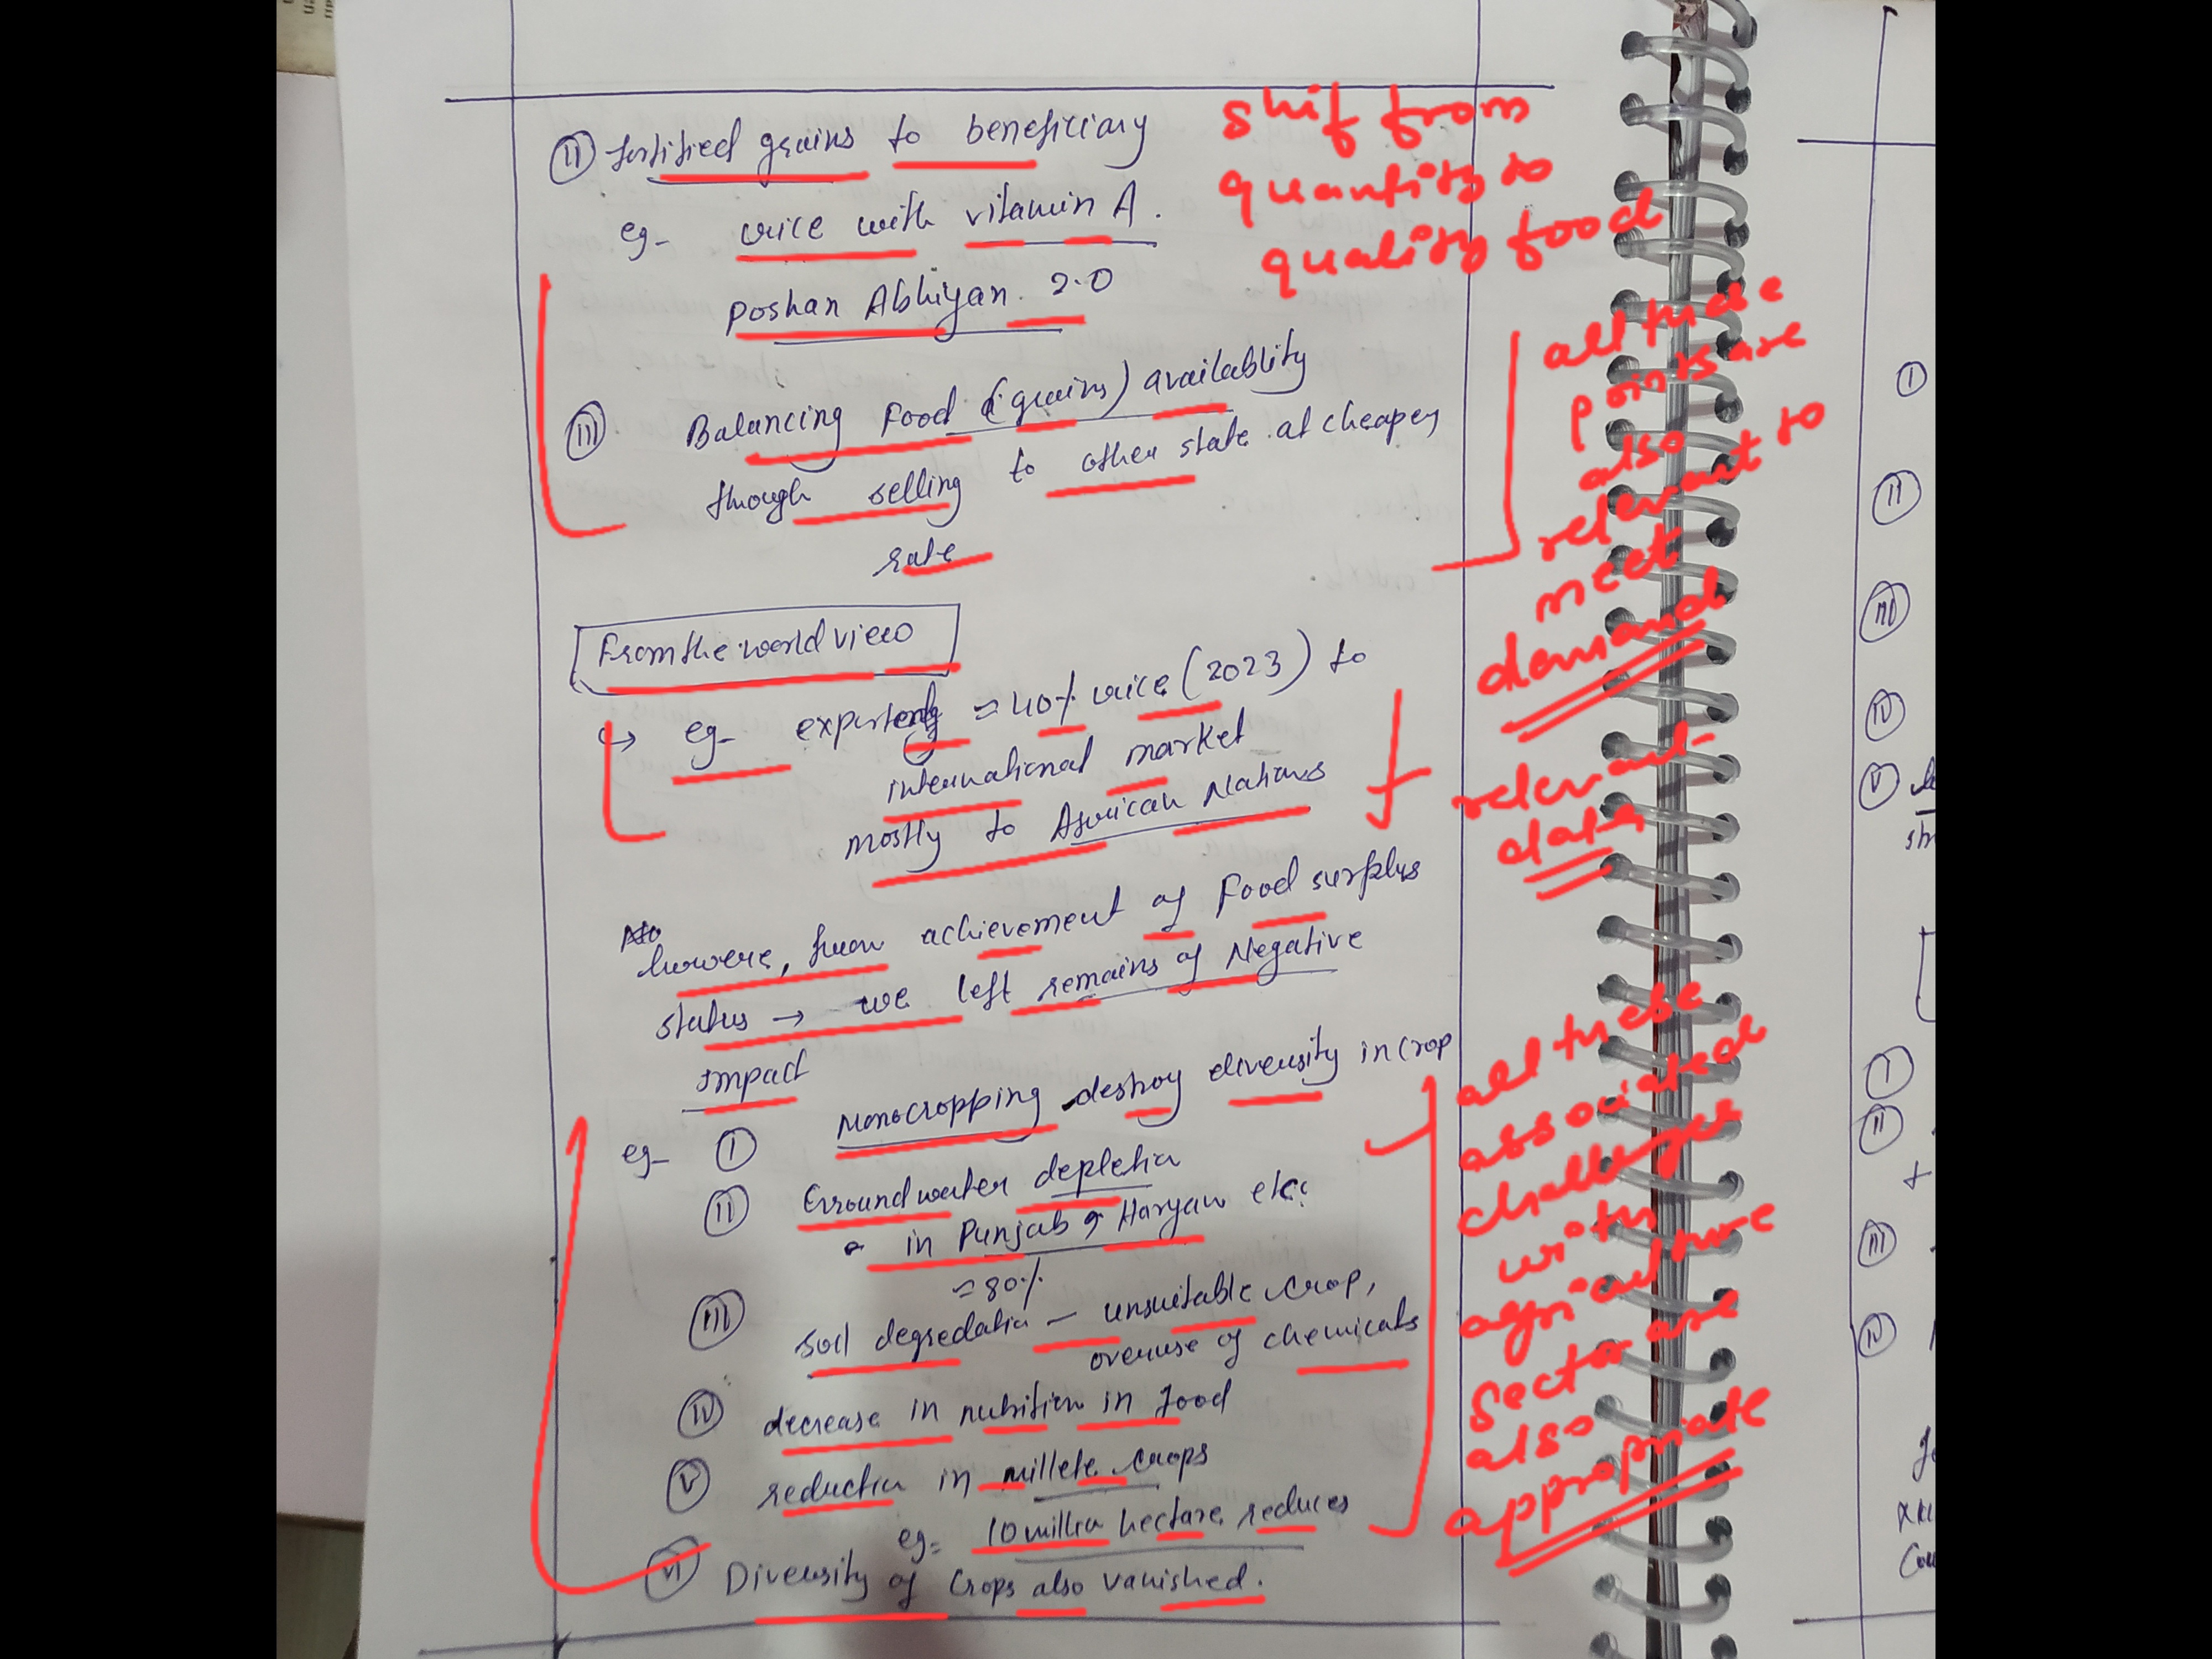 (II) fortified grains to beneficiary
eg- rice with vitamin A.
Poshan Abhiyan 2.0
(III) Balancing Food (grains) availablity
though selling to other state at cheaper
rate
shif from
quantity to
quality food
all these
points are
also
relevant to
meet
demand
From the world view
↳ eg- ≈ 40% rice (2023) to
international market
mostly to African Nations
relevant
data
howere, from achievement of Food surplus
status → we left remains of Negative
impact
eg- (I) Monocropping destroy diversity in crop
(II) Groundwater depletion
in Punjab, Haryan etc.
≈ 80%
(III) soil degredation - unsuitable crop,
overuse of chemicals
(IV) decrease in nutrition in food
(V) reduction in millete crops
eg= 10 million hectare reduces
(VI) Diversity of crops also vanished.
all these
associated
challenges
with
agriculture
sector are
also
appropriate
(I)
(II)
(III)
(IV)
(V)
(I)
(II)
(III)
(IV)